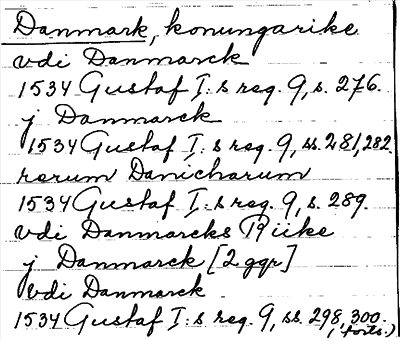 Danmark, konungarike
vdi Danmarck
1534 Gustaf I:s reg. 9, s. 276.
j Danmarck
1534 Gustaf I:s reg. 9, ss. 281, 282.
rerum Danicharum
1534 Gustaf I:s reg. 9, s. 289.
vdi Danmarcks Rijke
j Danmarck [2 ggr]
vdi Danmarck
1534 Gustaf I:s reg. 9, ss. 298, 300.
(forts.)